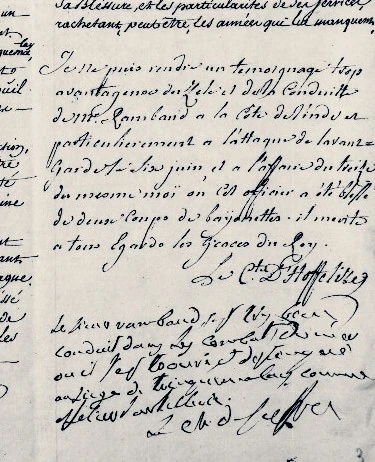 sa blessure, et les particularités de ses services
rachetant, peut être, les années qui lui manquent
Je ne puis rendre un temoignage trop
avantageux du Zele et de la Conduitte
de Mr. Rambaud a la Cote de l'inde et
particulierement a l'attaque de lavant=
Garde le Six juin, et a l'affaire du treize
du mesme moi ou Cet officier a été blessé
de deux Coups de bayonettes. il merite
a tous Egards les Graces du Roy.
Le Cte. D'hoffelize
Le sieur rambaud s'est trés bien
conduit dans les combats de mer
ou il s'est trouvé et
au siege de trinquemalay comme
officier d'artillerie.